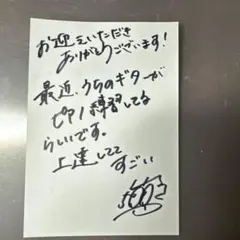 お迎えいただき
ありがとうございます！
最近、うちのギターが
ピアノ練習してる
らしいです。
上達してて
すごい